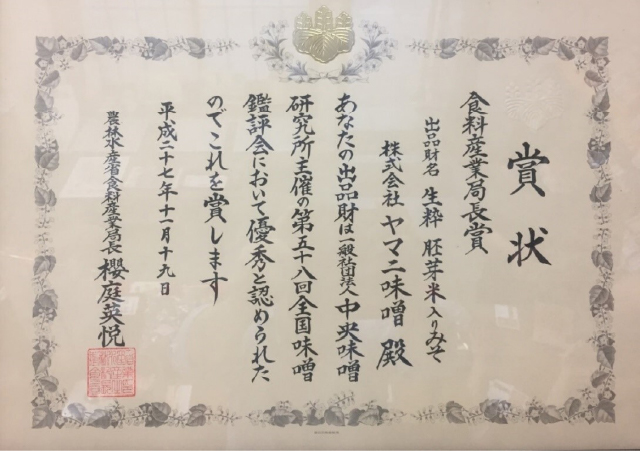 賞状
食料産業局長賞
出品財名 生粋 胚芽米入りみそ
株式会社 ヤマニ味噌 殿
あなたの出品財は一般社団法人中央味噌
研究所主催の第五十八回全国味噌
鑑評会において優秀と認められた
のでこれを賞します
平成二十七年十一月十九日
農林水産省食料産業局長 櫻庭英悦